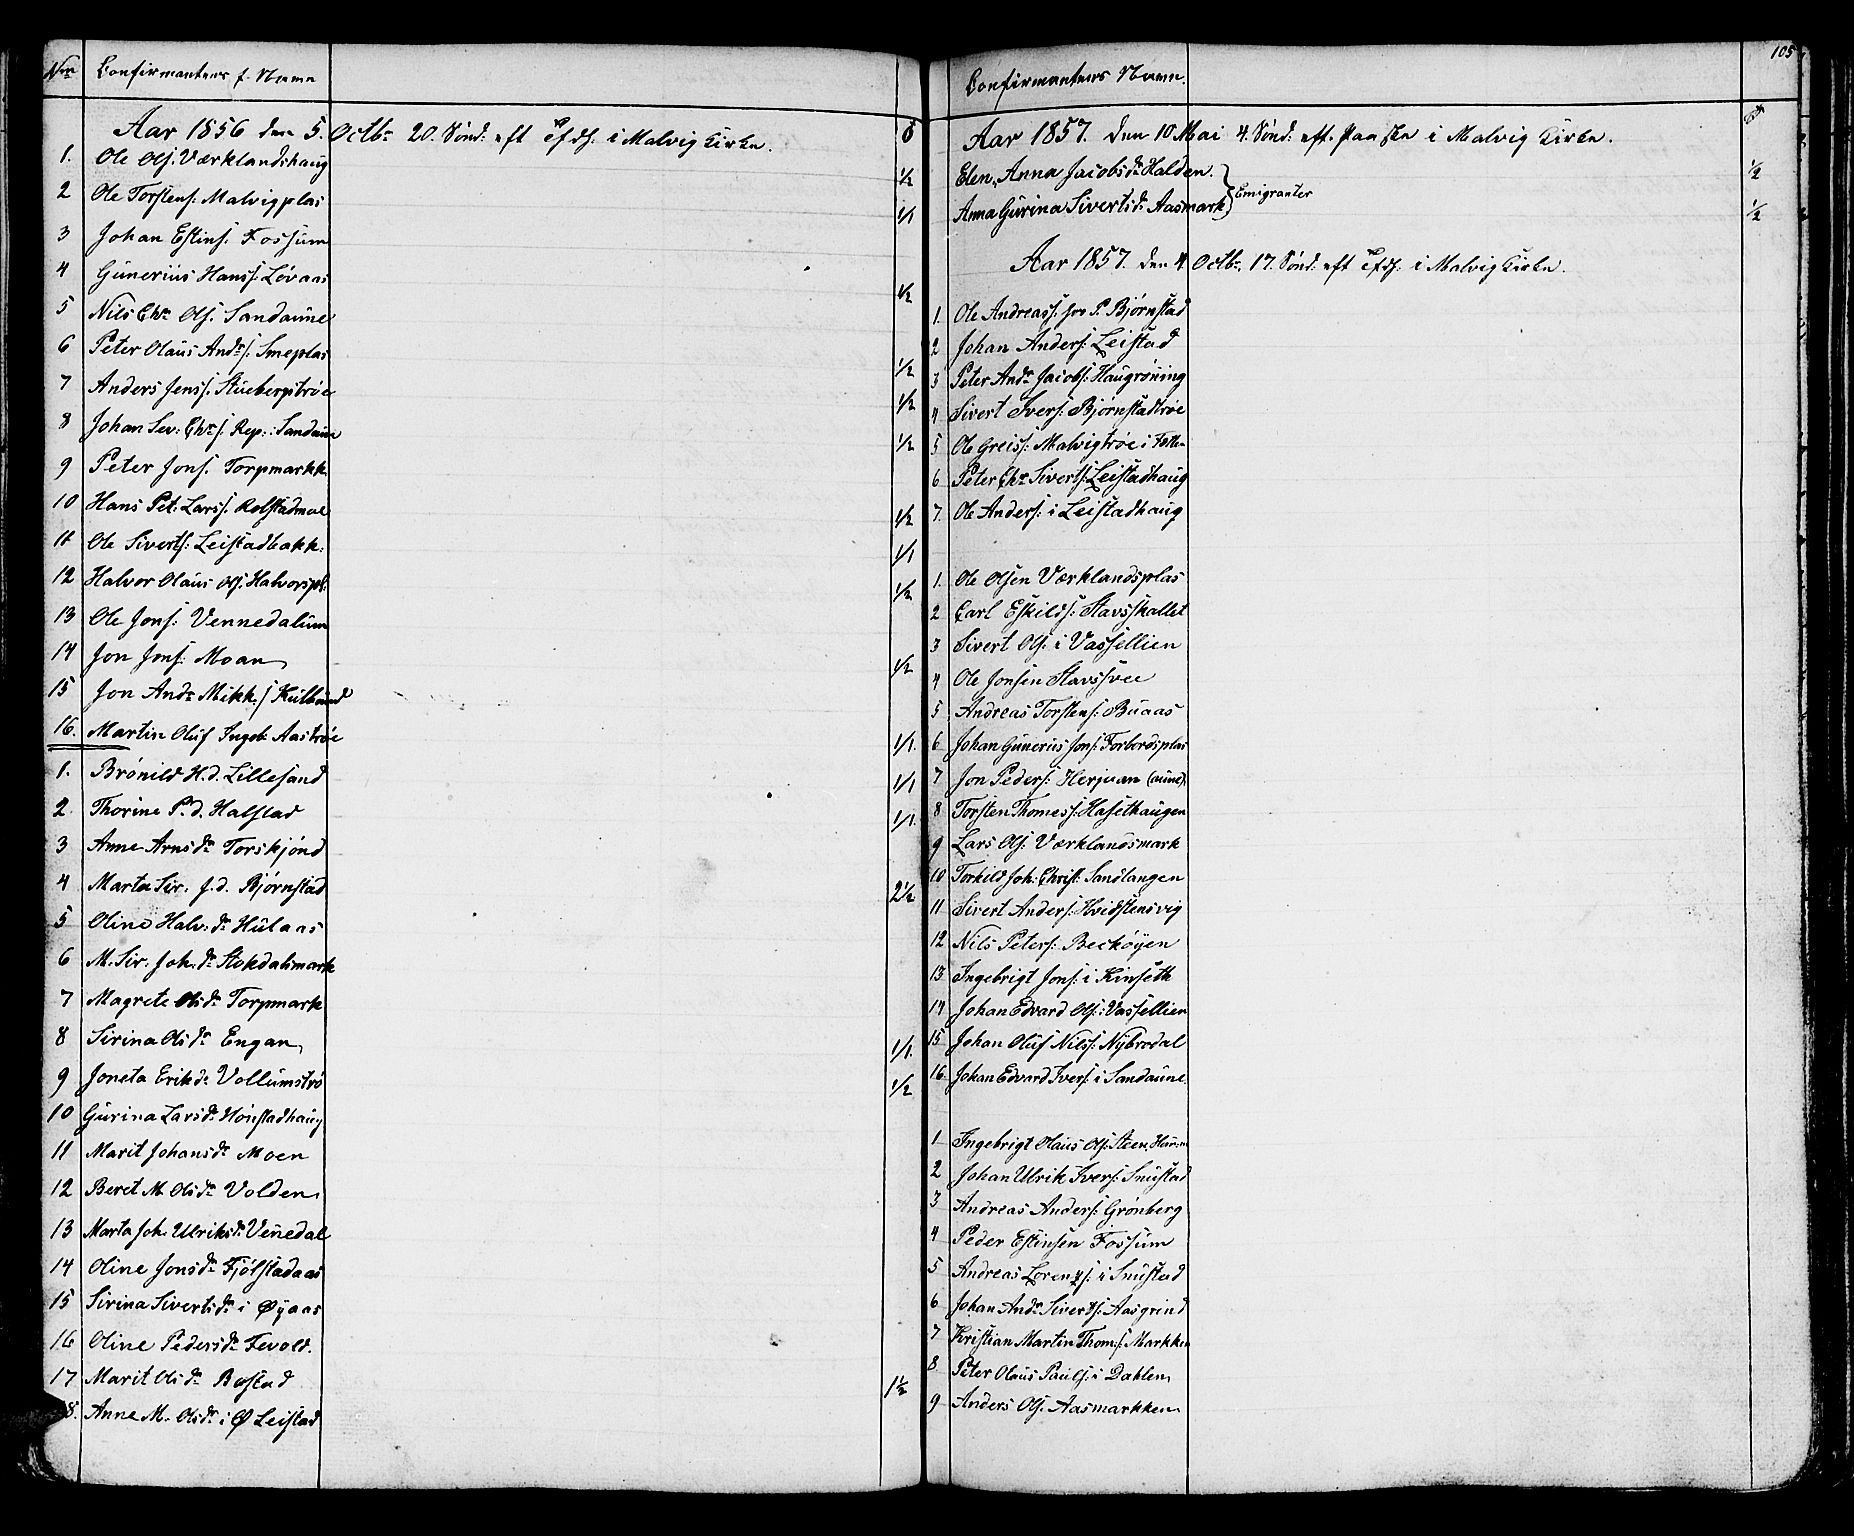 Nro Confirmantens f. Navn
Aar 1856 den 5. Octbr 20. Sønd: eft Trfdg. i Malvig Kirke.
1. Ole Ols. Værklandshaug 1/2
2 Ole Torstens: Malvigplas 1/1
3 Johan Estins. Fossum
4 Gunerius Hanss: Løvaas 1/2
5 Nils Chr Ols. Sandaune
6 Peter Olaus Andrs: Smeplas 1/2
7 Anders Jenss. Stuebergstrøe 1/2
8 Johan Sev: Chrs. Rep: Sandaun 1/2
9 Peter Jons. Torpmarkk
10 Hans Pet. Larss. Rolstadmoe 1/2
11 Ole Siverts: Leistadbakk: 1/1
12 Halvor Olaus Ols. Halvorspl. 1/2
13 Ole Jons: Vennedalum
14 Jon Jons: Moan 1/2
15 Jon Andr Mikk.s Kulbrand
16. Martin Oluf Ingeb: Aastrøe 1/1.
1. Brønild H.d. Lillesand 1/1
2. Thorine P.d. Halstad 1/1.
3 Anne Arnsdr Torskjønd
4 Marta Sir. J.d. Bjørnstad 2 1/2
5 Oline Halv: dr Hulaas
6 M. Sir. Joh. dr Stokdalsmark
7 Magrete Olsdr Torpmark
8 Sirina Olsdr Engan 1/1.
9 Joneta Erikdr Vollumstrø 1/2
10 Gurina Larsdr Hønstadhaug
11 Marit Johansdr Moen
12 Beret M. Olsdr Volden
13 Marta Joh. Ulriksdr Venedal
14 Oline Jonsdr Fjølstadaas
15 Sirina Sivertsdr i Øyaas
16 Oline Pedersdr Fevold.
17 Marit Olsdr Bostad 1 1/2
18. Anne M. Olsdr i Ø Leistad
105
Confirmantens Navn.
Aar 1857. den 10. Mai 4. Sønd: eft. Paaske i Malvig Kirke.
Elen Anna Jacobsdr Halden. 1/2
Anna Gurina Sivertsdr Aasmark } Emigranter 1/2
Aar 1857. den 4 Octbr. 17. Sønd: eft Trfdg. i Malvig Kirke.
1. Ole Andreass. Bjørnstad
2 Johan Anders: Leistad
3 Peter Andr Jacobs: Haugrøning
4 Sivert Ivers: Bjørnstadtrøe
5 Ole Greiss: Malvigtrøe i
6 Peter Chr Siverts: Leistadhaug
7. Ole Anders: i Leistadhaug
1. Ole Olsen Værklandsplas
2 Carl Eskilds: Stavsskallet
3 Sivert Ols. i Vassellien
4 Ole Jonsen Stavssvee
5 Andreas Torstens: Buaas
6 Johan Gunerius Jons: Forbordsplas
7 Jon Peders: Herjuan
8 Torsten Thomess: Hasethaugen
9 Lars Ols. Værklandsmark
10 Torkild Joh: Christ: Sandlangen
11 Sivert Anders: Hvidstensvig
12 Nils Peters: Beckøyen
13 Ingebrigt Jons: i Kinseth
14 Johan Edvard Ols: Vassellien
15 Johan Oluf Nilss: Nybrodal
16. Johan Edvard Ivers: i Sandaune
1 Ingebrigt Olaus Ols. Steen
2 Johan Ulrik Ivers: Snustad
3 Andreas Anders: Grønberg
4 Peder Estinsen Fossum
5 Andreas Lorentzs. i Snustad
6 Johan Andr Siverts: Aasgrind
7 Kristian Martin Thom.s: Markken
8 Peter Olaus Pauls: i Dahlem
9 Anders Ols. Aasmarkken